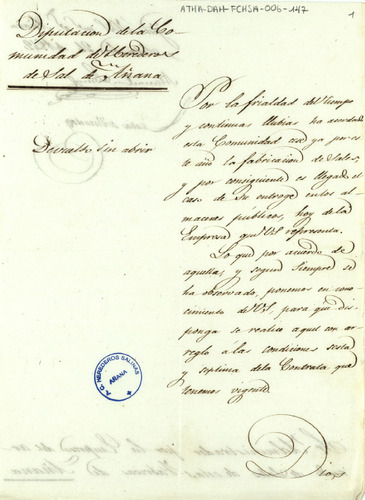 ATHA-DAH-FCHSA-006-147
1
Diputacion de la Co-
munidad de Herederos
de Sal de Añana
Devuelto sin abrir
Por la frialdad del tiempo
y continuas llubias ha acordado
esta Comunidad cese ya por es-
te año la fabricacion de Sales,
y por consiguiente es llegado el
caso de su entroge en los al-
macenes publicos, hoy de la
Empresa que VS representa.
Lo que por acuerdo de
aquella, y segun siempre se
ha observado, ponemos en cono-
cimiento de VS, para que dis-
ponga se realice aquel con ar-
reglo á las condiciones sexta
y septima de la Contrata que
tenemos vigente.
Dios
A. C. HEREDEROS SALINAS
AÑANA